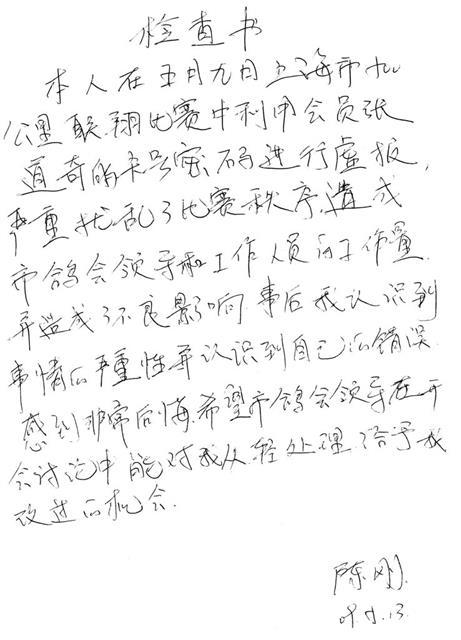 检查书
本人在五月九日上海市
公里联翔比赛中利用会员张
道奇的卡号密码进行虚报,
严重扰乱了比赛秩序,造成
市鸽会领导和工作人员的工作量
并造成了不良影响,事后我认识到
事情的严重性并认识到自己的错误
感到非常后悔,希望市鸽会领导在开
会讨论中能对我从轻处理,给予我
改过的机会.
陈刚
09.5.13